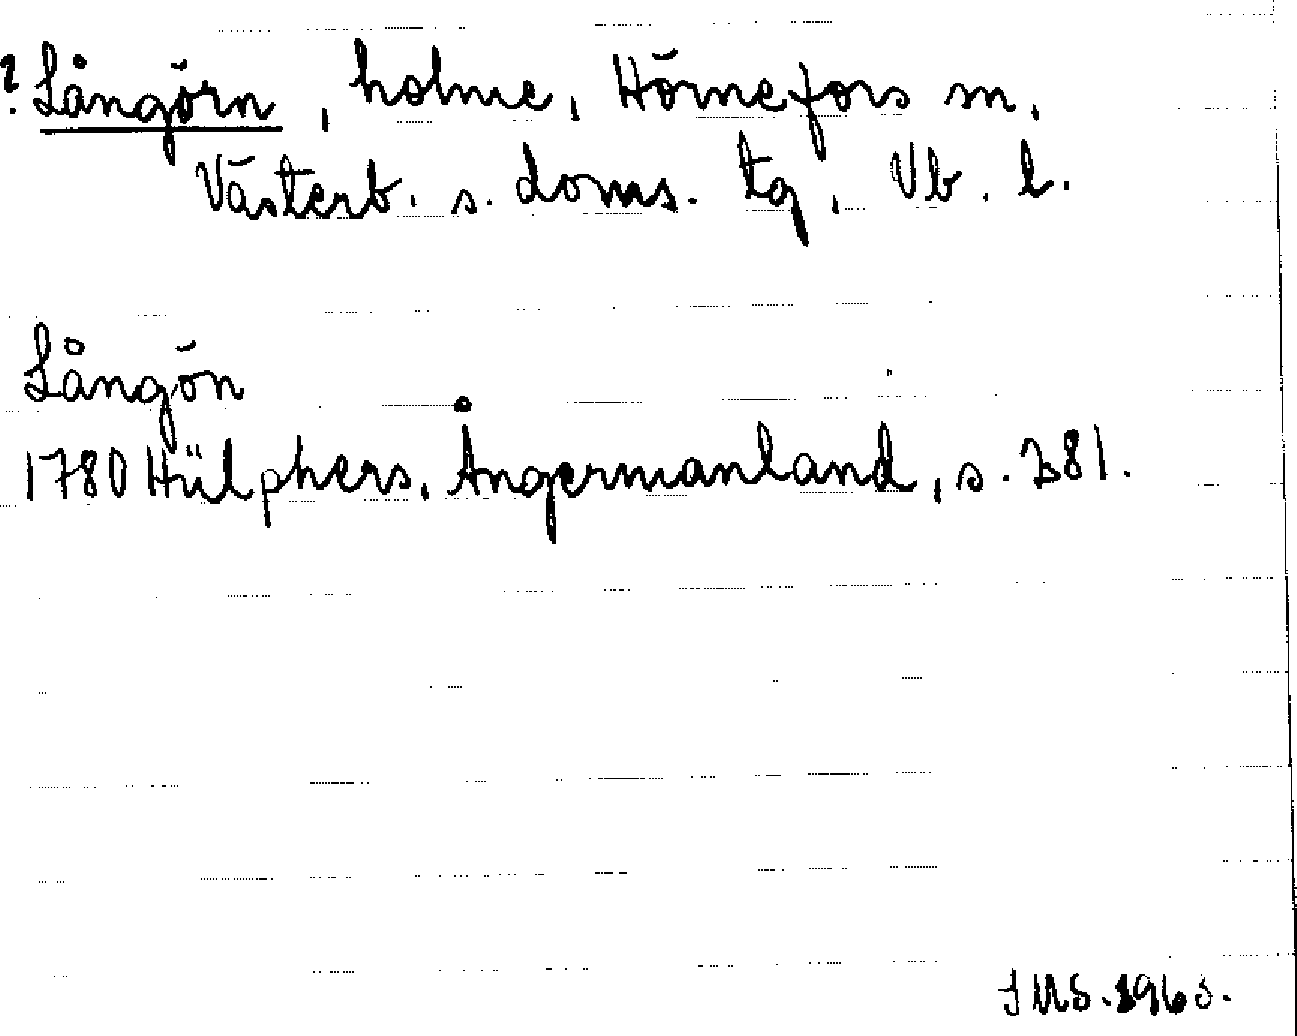 ? Långörn, holme, Hörnefors sn.
Västerb. s. doms. tg, Vb. l.
Långön
1780 Hülphers, Ångermanland, s. 381.